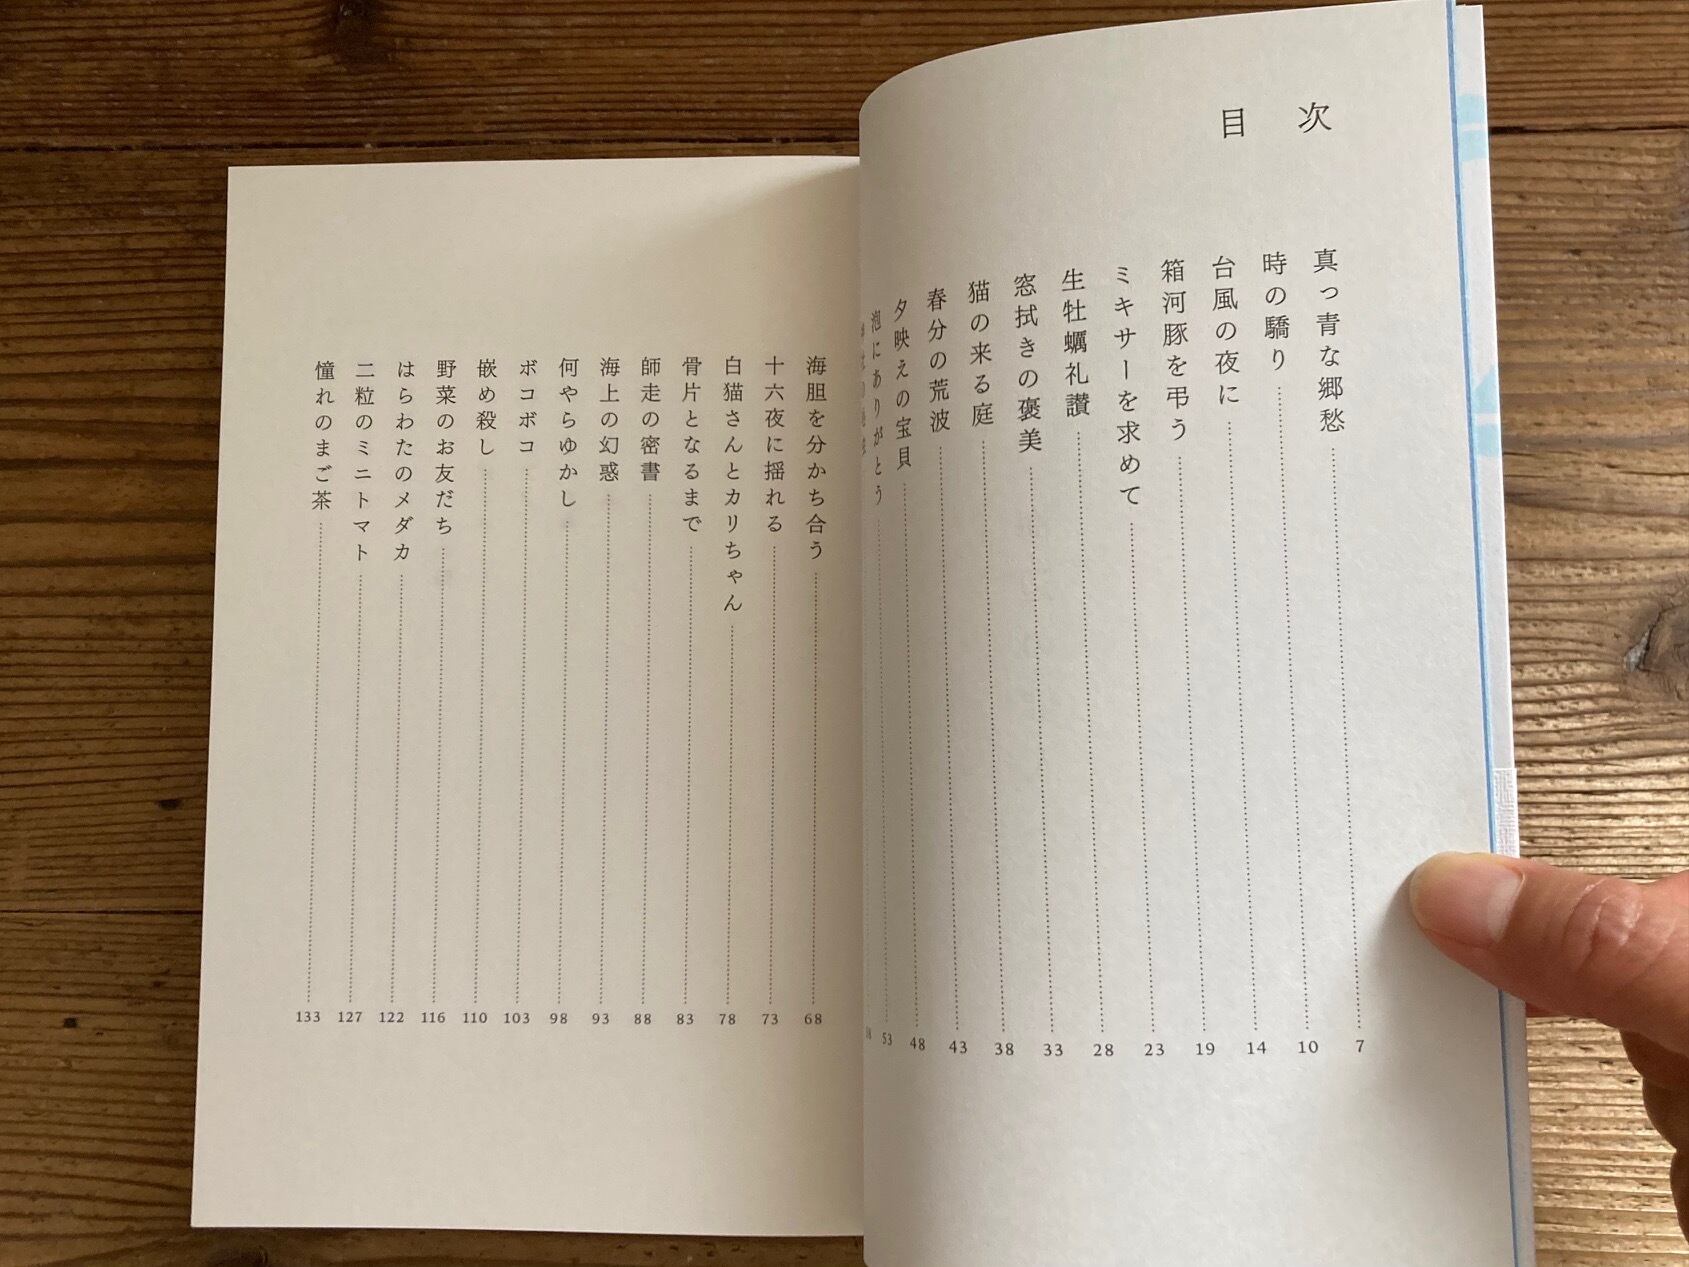 目次
真っ青な郷愁 7
時の驕り 10
台風の夜に 14
箱河豚を弔う 19
ミキサーを求めて 23
生牡蠣礼讃 28
窓拭きの褒美 33
猫の来る庭 38
春分の荒波 43
夕映えの宝貝 48
泡にありがとう 53
海胆を分かち合う 68
十六夜に揺れる 73
白猫さんとカリちゃん 78
骨片となるまで 83
師走の密書 88
海上の幻惑 93
何やらゆかし 98
ボコボコ 103
嵌め殺し 110
野菜のお友だち 116
はらわたのメダカ 122
二粒のミニトマト 127
憧れのまご茶 133